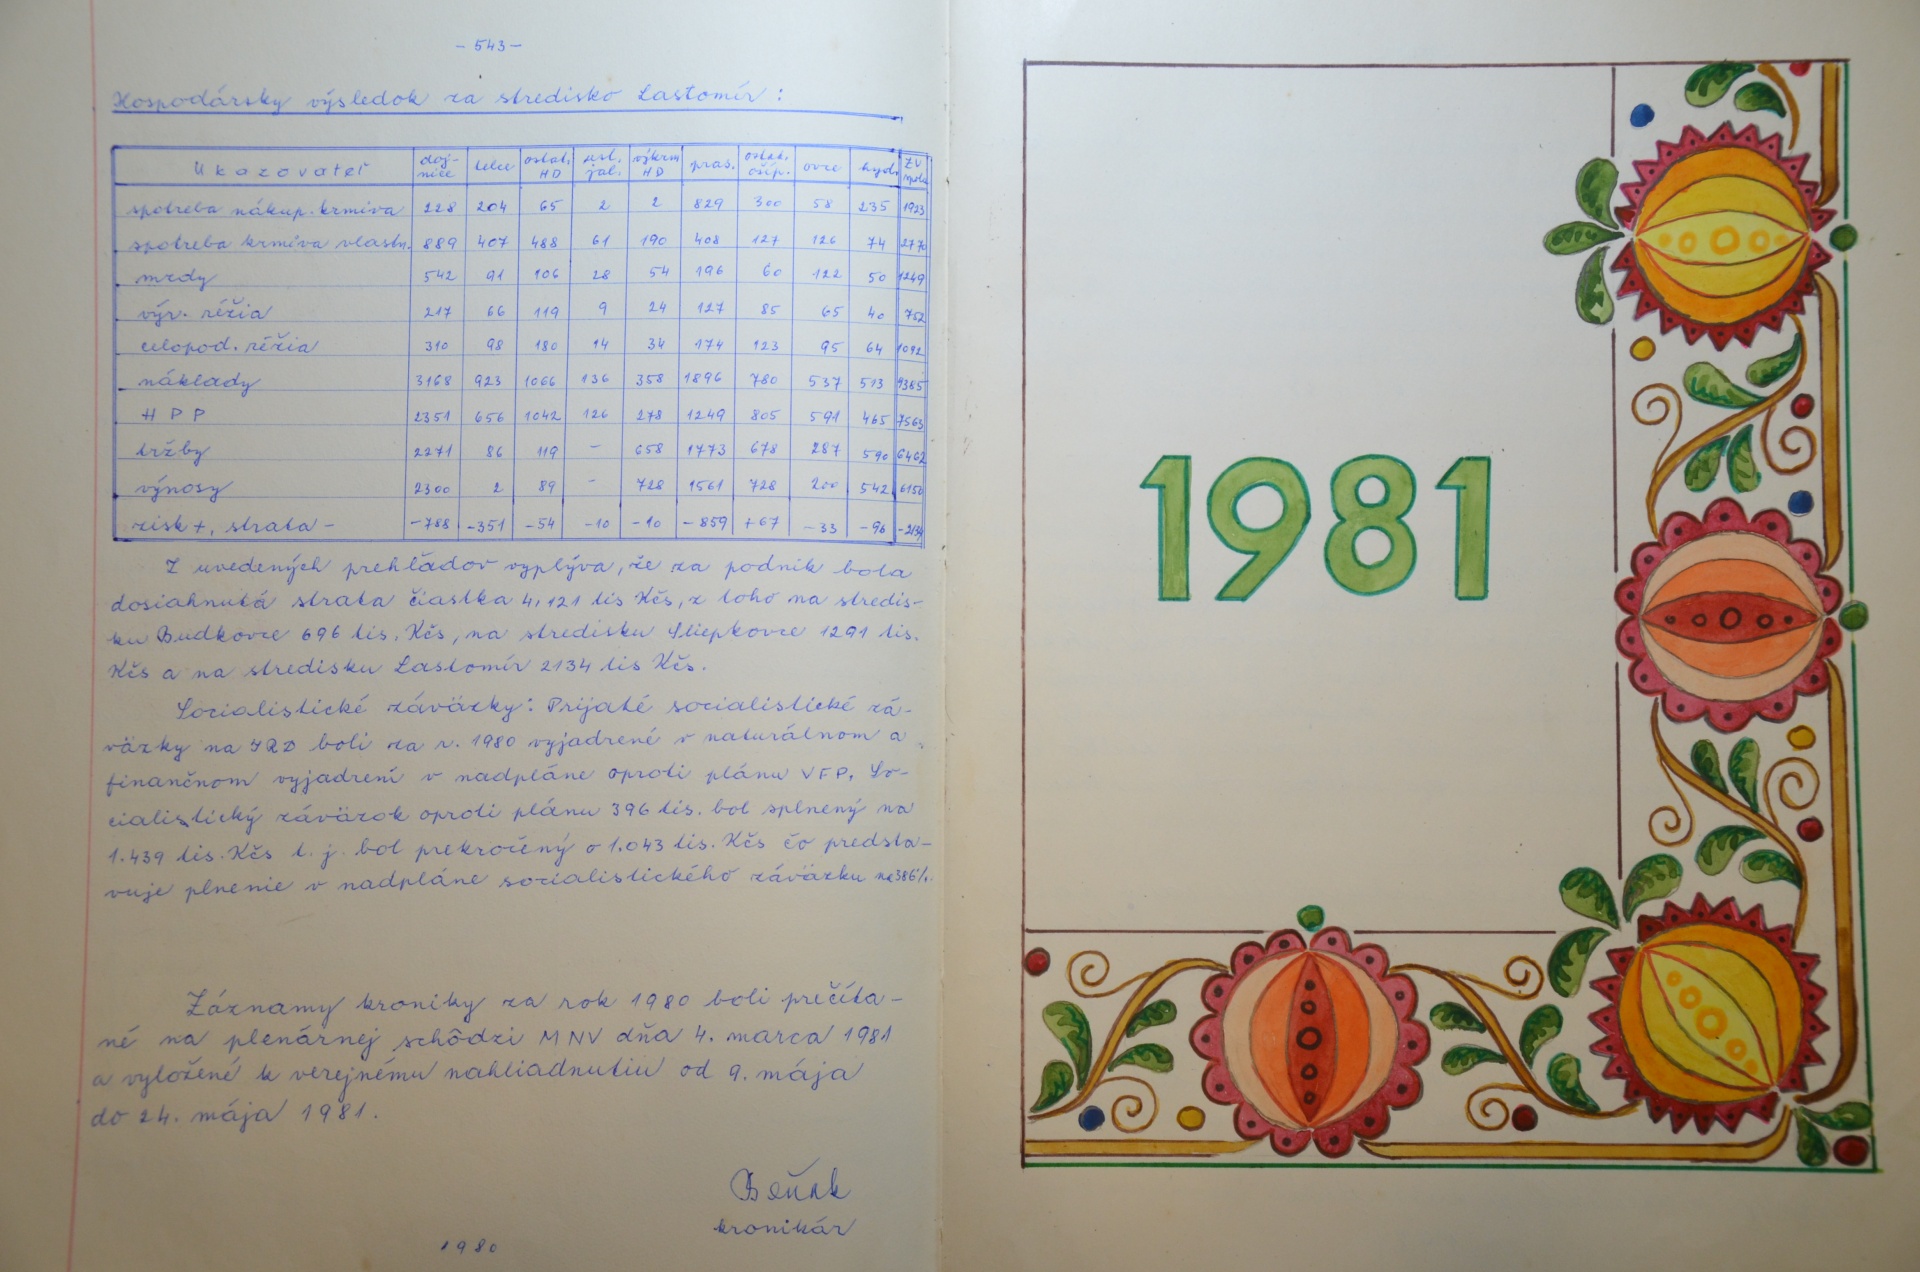 - 543 -
Hospodársky výsledok za stredisko Lastomír :
Ukazovateľ doj-nice telce ostat. HD ust. jal. výkrm HD pras. ostat. ošíp. ovce hyd. ŽV spolu
spotreba nákup. krmiva 228 204 65 2 2 829 300 58 235 1923
spotreba krmiva vlastn. 889 407 488 61 190 408 127 126 74 2770
mzdy 542 91 106 28 54 196 60 122 50 1249
výr. réžia 217 66 119 9 24 127 85 65 40 752
celopod. réžia 310 98 180 14 34 174 123 95 64 1092
náklady 3168 923 1066 136 358 1896 780 537 513 9385
HPP 2351 656 1042 126 278 1249 805 591 465 7563
tržby 2271 86 119 - 658 1773 678 287 590 6462
výnosy 2300 2 89 - 728 1561 728 200 542 6150
zisk +, strata - -788 -351 -54 -10 -10 -859 +67 -33 -96 -2134
Z uvedených prehľadov vyplýva, že za podnik bola
dosiahnutá strata čiastka 4,121 tis Kčs, z toho na stredis-
ku Budkovce 696 tis. Kčs, na stredisku Sliepkovce 1291 tis.
Kčs a na stredisku Lastomír 2134 tis Kčs.
Socialistické záväzky: Prijaté socialistické zá-
väzky na JRD boli za r. 1980 vyjadrené v naturálnom a
finančnom vyjadrení v nadpláne oproti plánu VFP. So-
cialistický záväzok oproti plánu 396 tis. bol splnený na
1.439 tis. Kčs t. j. bol prekročený o 1.043 tis. Kčs čo predsta-
vuje plnenie v nadpláne socialistického záväzku na 386%.
Záznamy kroniky za rok 1980 boli prečíta-
né na plenárnej schôdzi MNV dňa 4. marca 1981
a vyložené k verejnému nahliadnutiu od 9. mája
do 24. mája 1981.
Beňak
kronikár
1980
1981